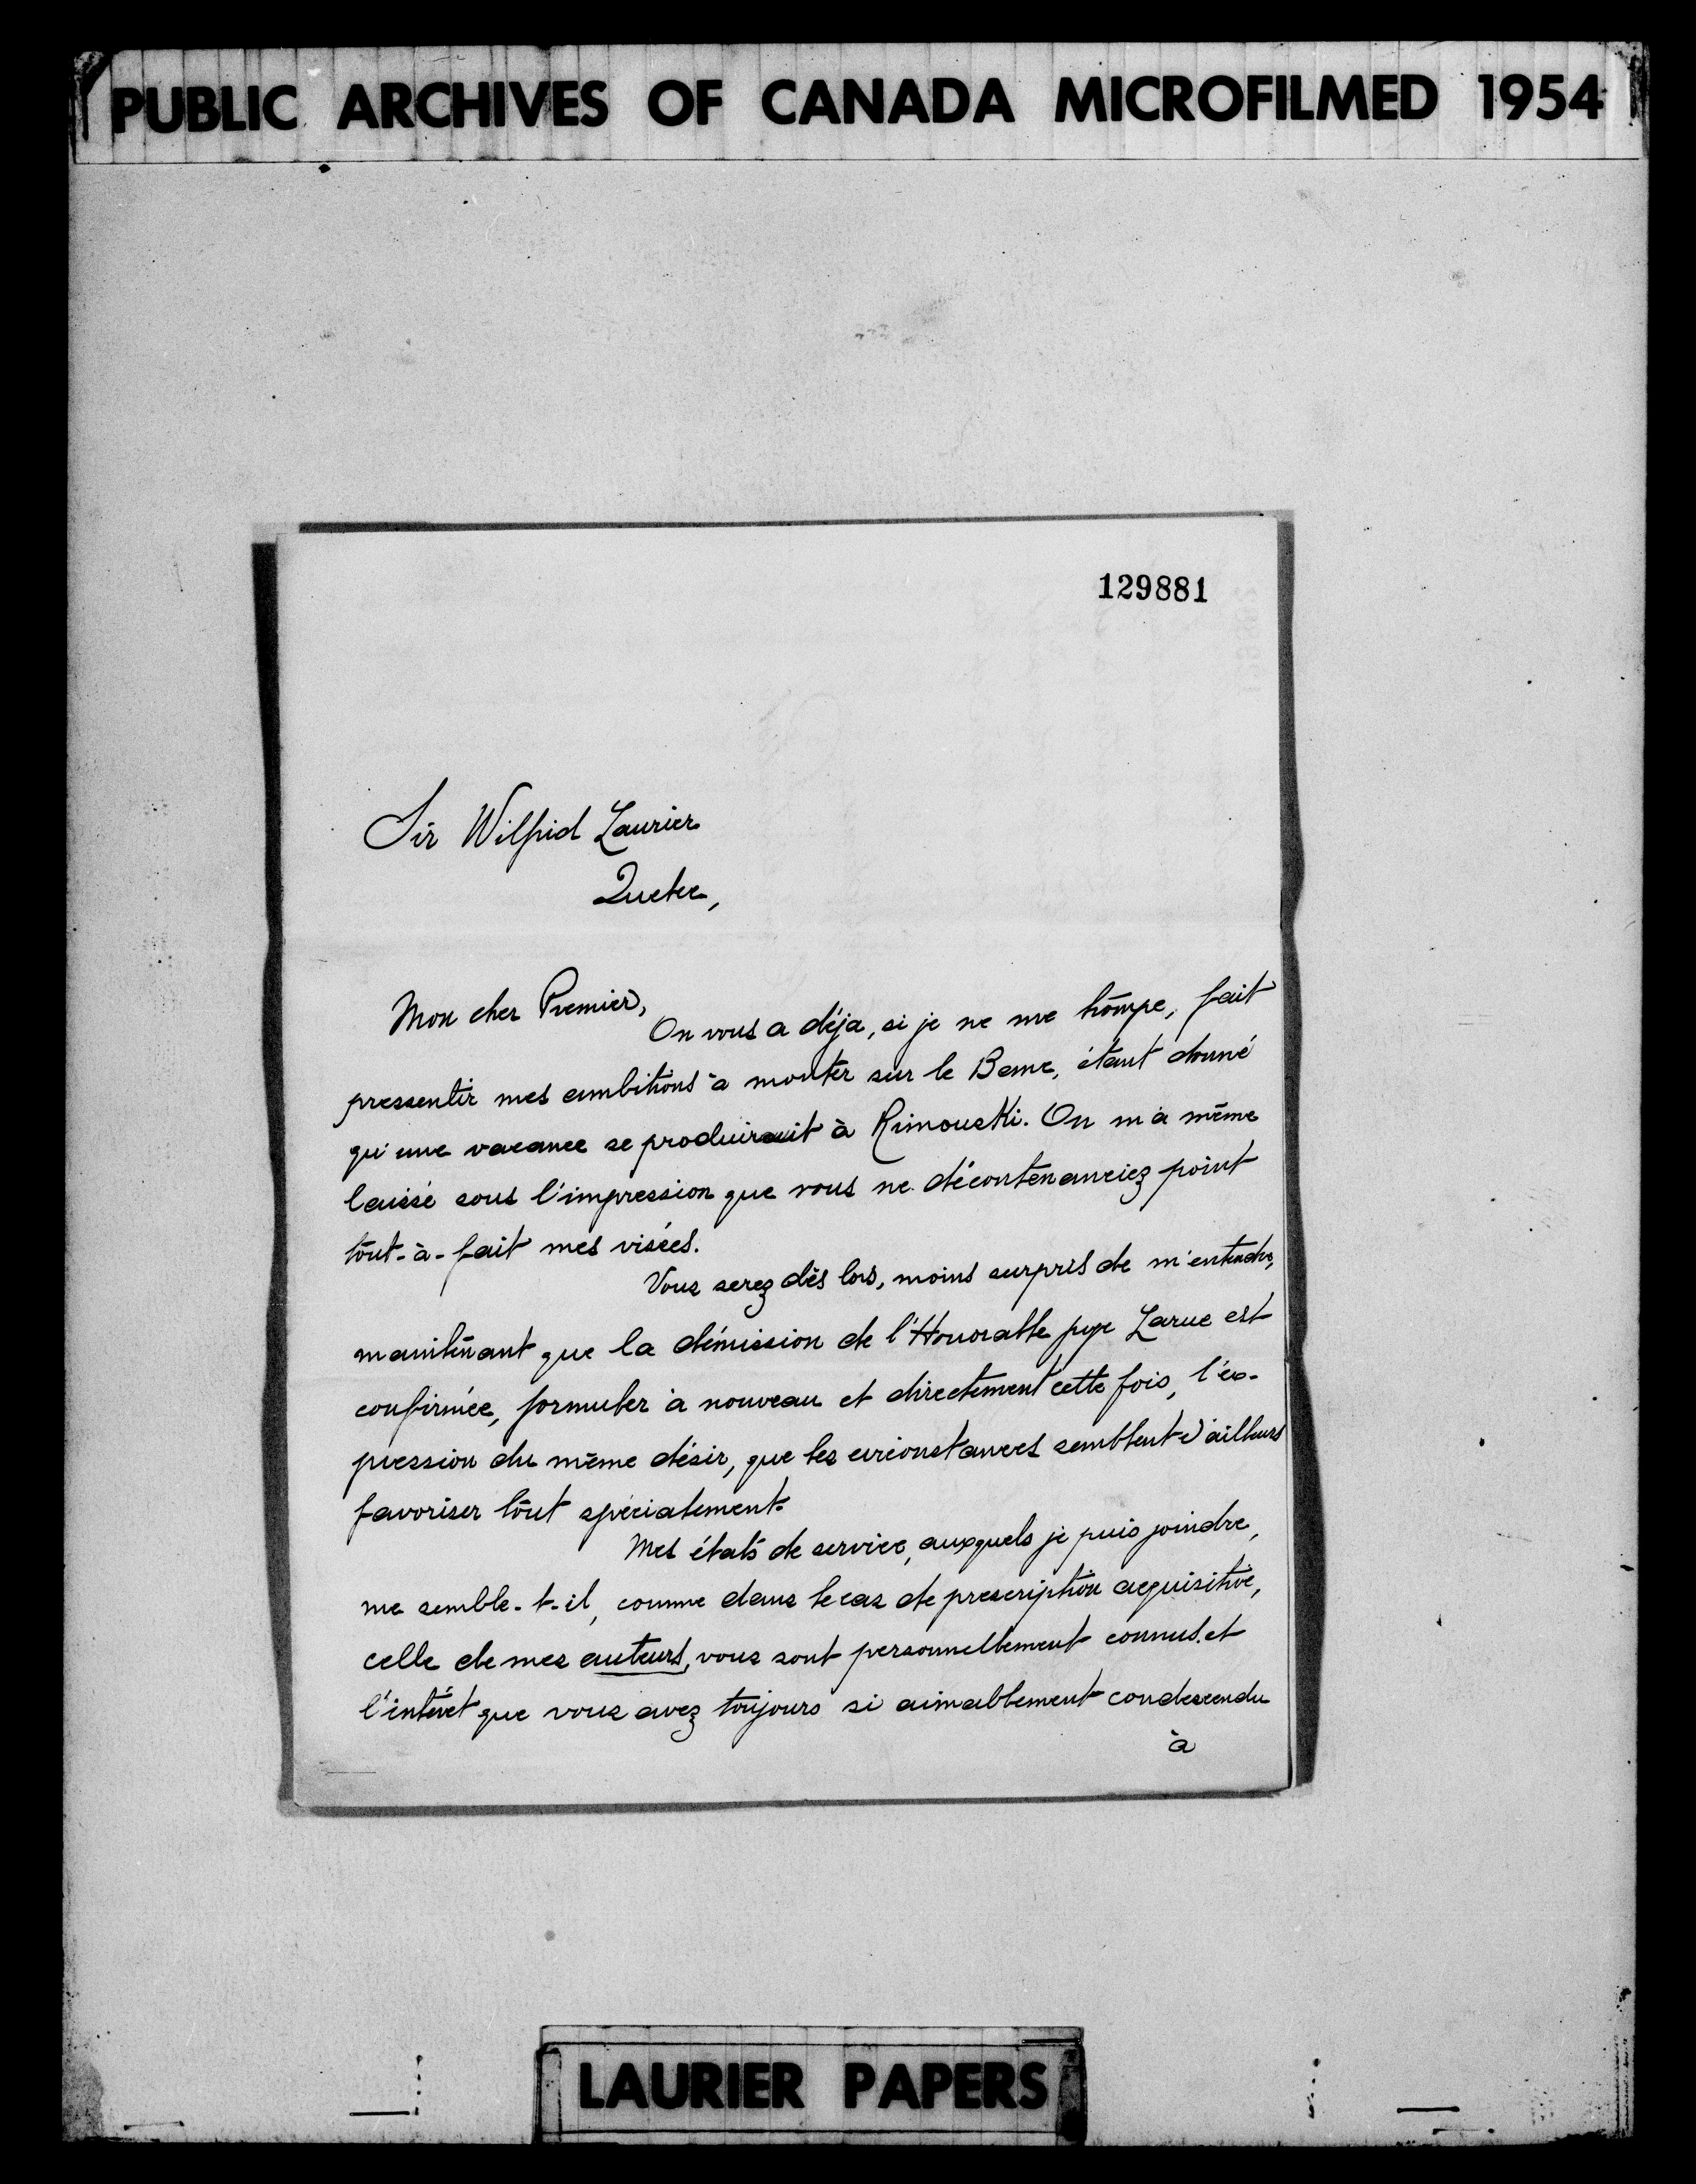 PUBLIC ARCHIVES OF CANADA MICROFILMED 1954
129881
Sir Wilfrid Laurier
Quebec,
Mon cher Premier,
On vous a déja, si je ne me trompe, fait
pressentir mes ambitions à monter sur le Banc, étant donné
qu'une vacance se produirait à Rimouski. On m'a même
laissé sous l'impression que vous ne décontenanciez point
tout-à-fait mes visées.
Vous serez dès lors, moins surpris de m'entendre,
maintenant que la démission de l'Honorable juge Larue est
confirmée, formuler à nouveau et directement cette fois, l'ex-
pression du même désir, que les circonstances semblent d'ailleurs
favoriser tout spécialement.
Mes états de service, auxquels je puis joindre,
me semble-t-il, comme dans le cas de prescription acquisitive,
celle de mes auteurs, vous sont personnellement connus et
l'intérêt que vous avez toujours si aimablement condescendu
à
LAURIER PAPERS